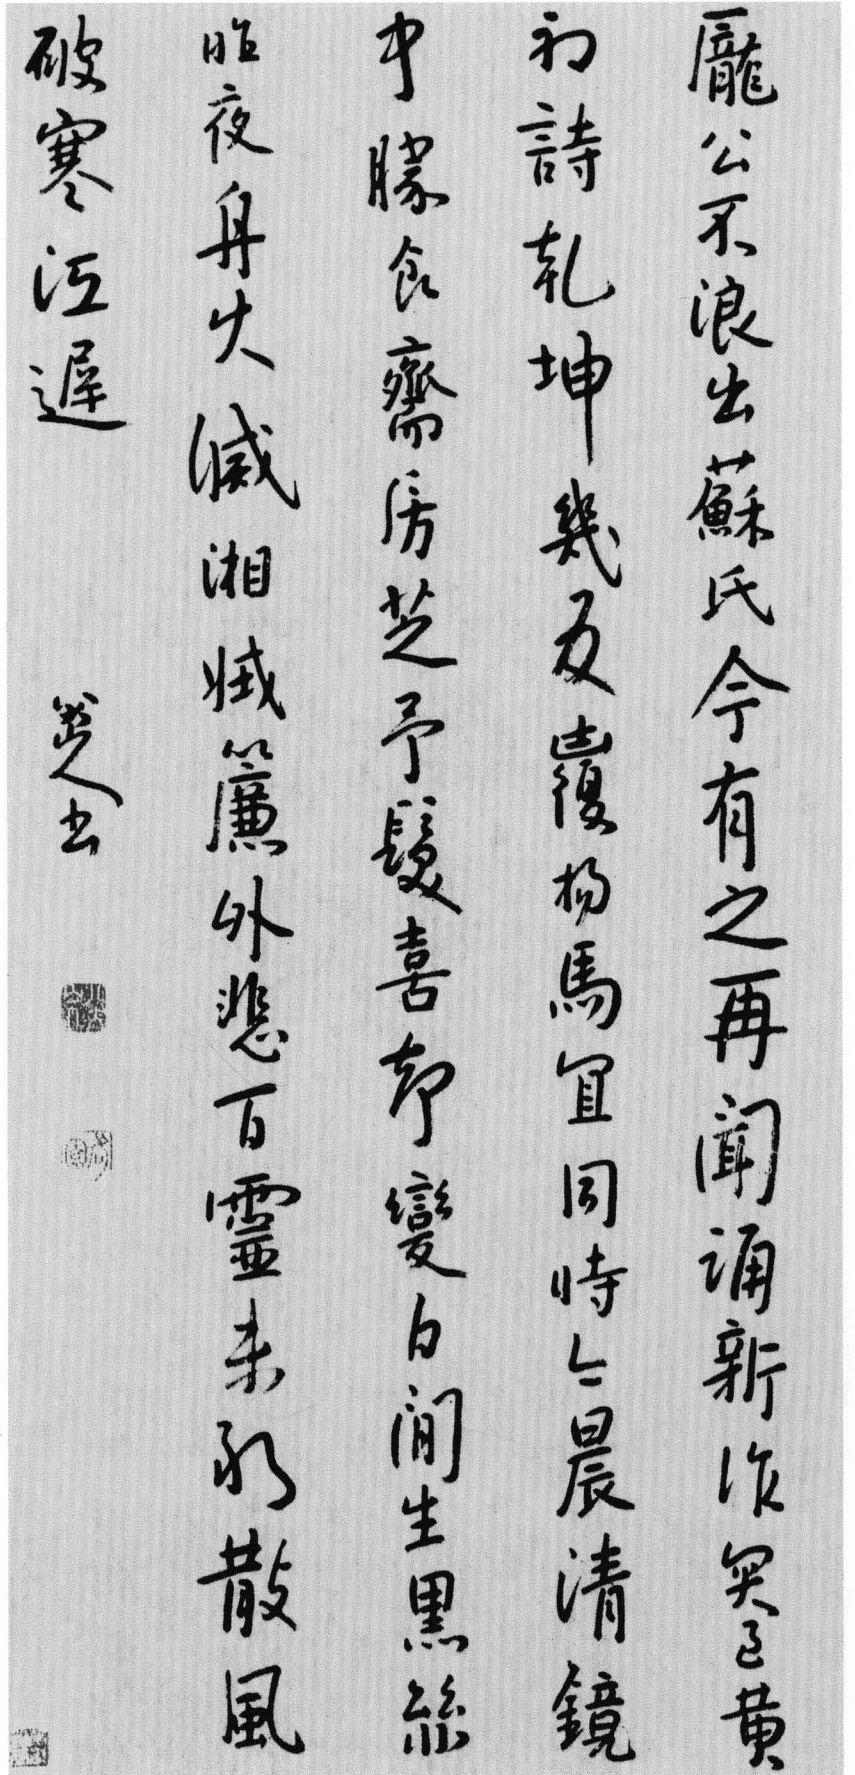 龐公不浪出蘇氏今有之再聞誦新作突過黃
初詩乾坤幾反覆楊馬宜同時今晨清鏡
中勝食齋房芝予髮喜却變白閒生黑絲
昨夜舟火滅湘娥簾外悲百靈未敢散風
破寒江遲
八大山人書